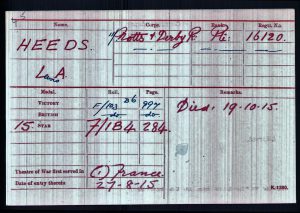 Name. Corps. Rank. Regtl. No.
HEEDS. Notts & Derby R. Pte. 16120.
L.A.
Medal. Roll. Page. Remarks.
VICTORY F/103 B6 997 Died. 19-10-15.
BRITISH do do
15 STAR F/1B4 284.
Theatre of War first served in (1) France
Date of entry therein 27-8-15
K. 1380.